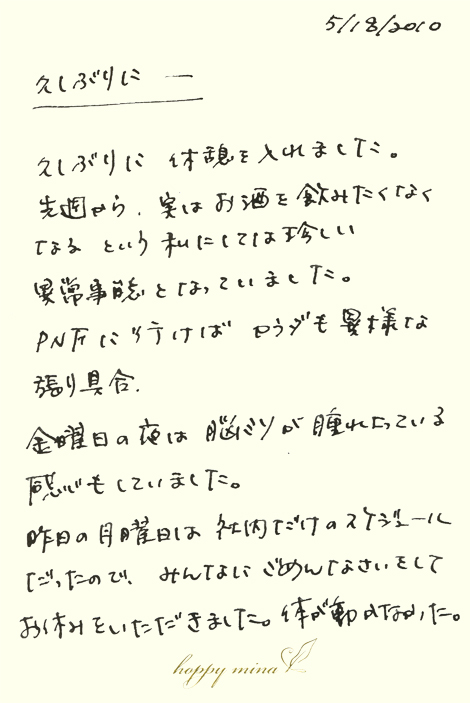 5/18/2010
久しぶりに 一
久しぶりに 休憩を入れました。
先週から、実はお酒を飲みたくなく
なる という 私にしては珍しい
異常事態となっていました。
PNFに行けば カラダも異様な
張り具合。
金曜日の夜は 脳ミソが腫れたっている
感じもしていました。
昨日の月曜日は 社内だけのスケジュール
だったので、みんなに ごめんなさいをして
お休みをいただきました。体が動かなかった。
happy mina